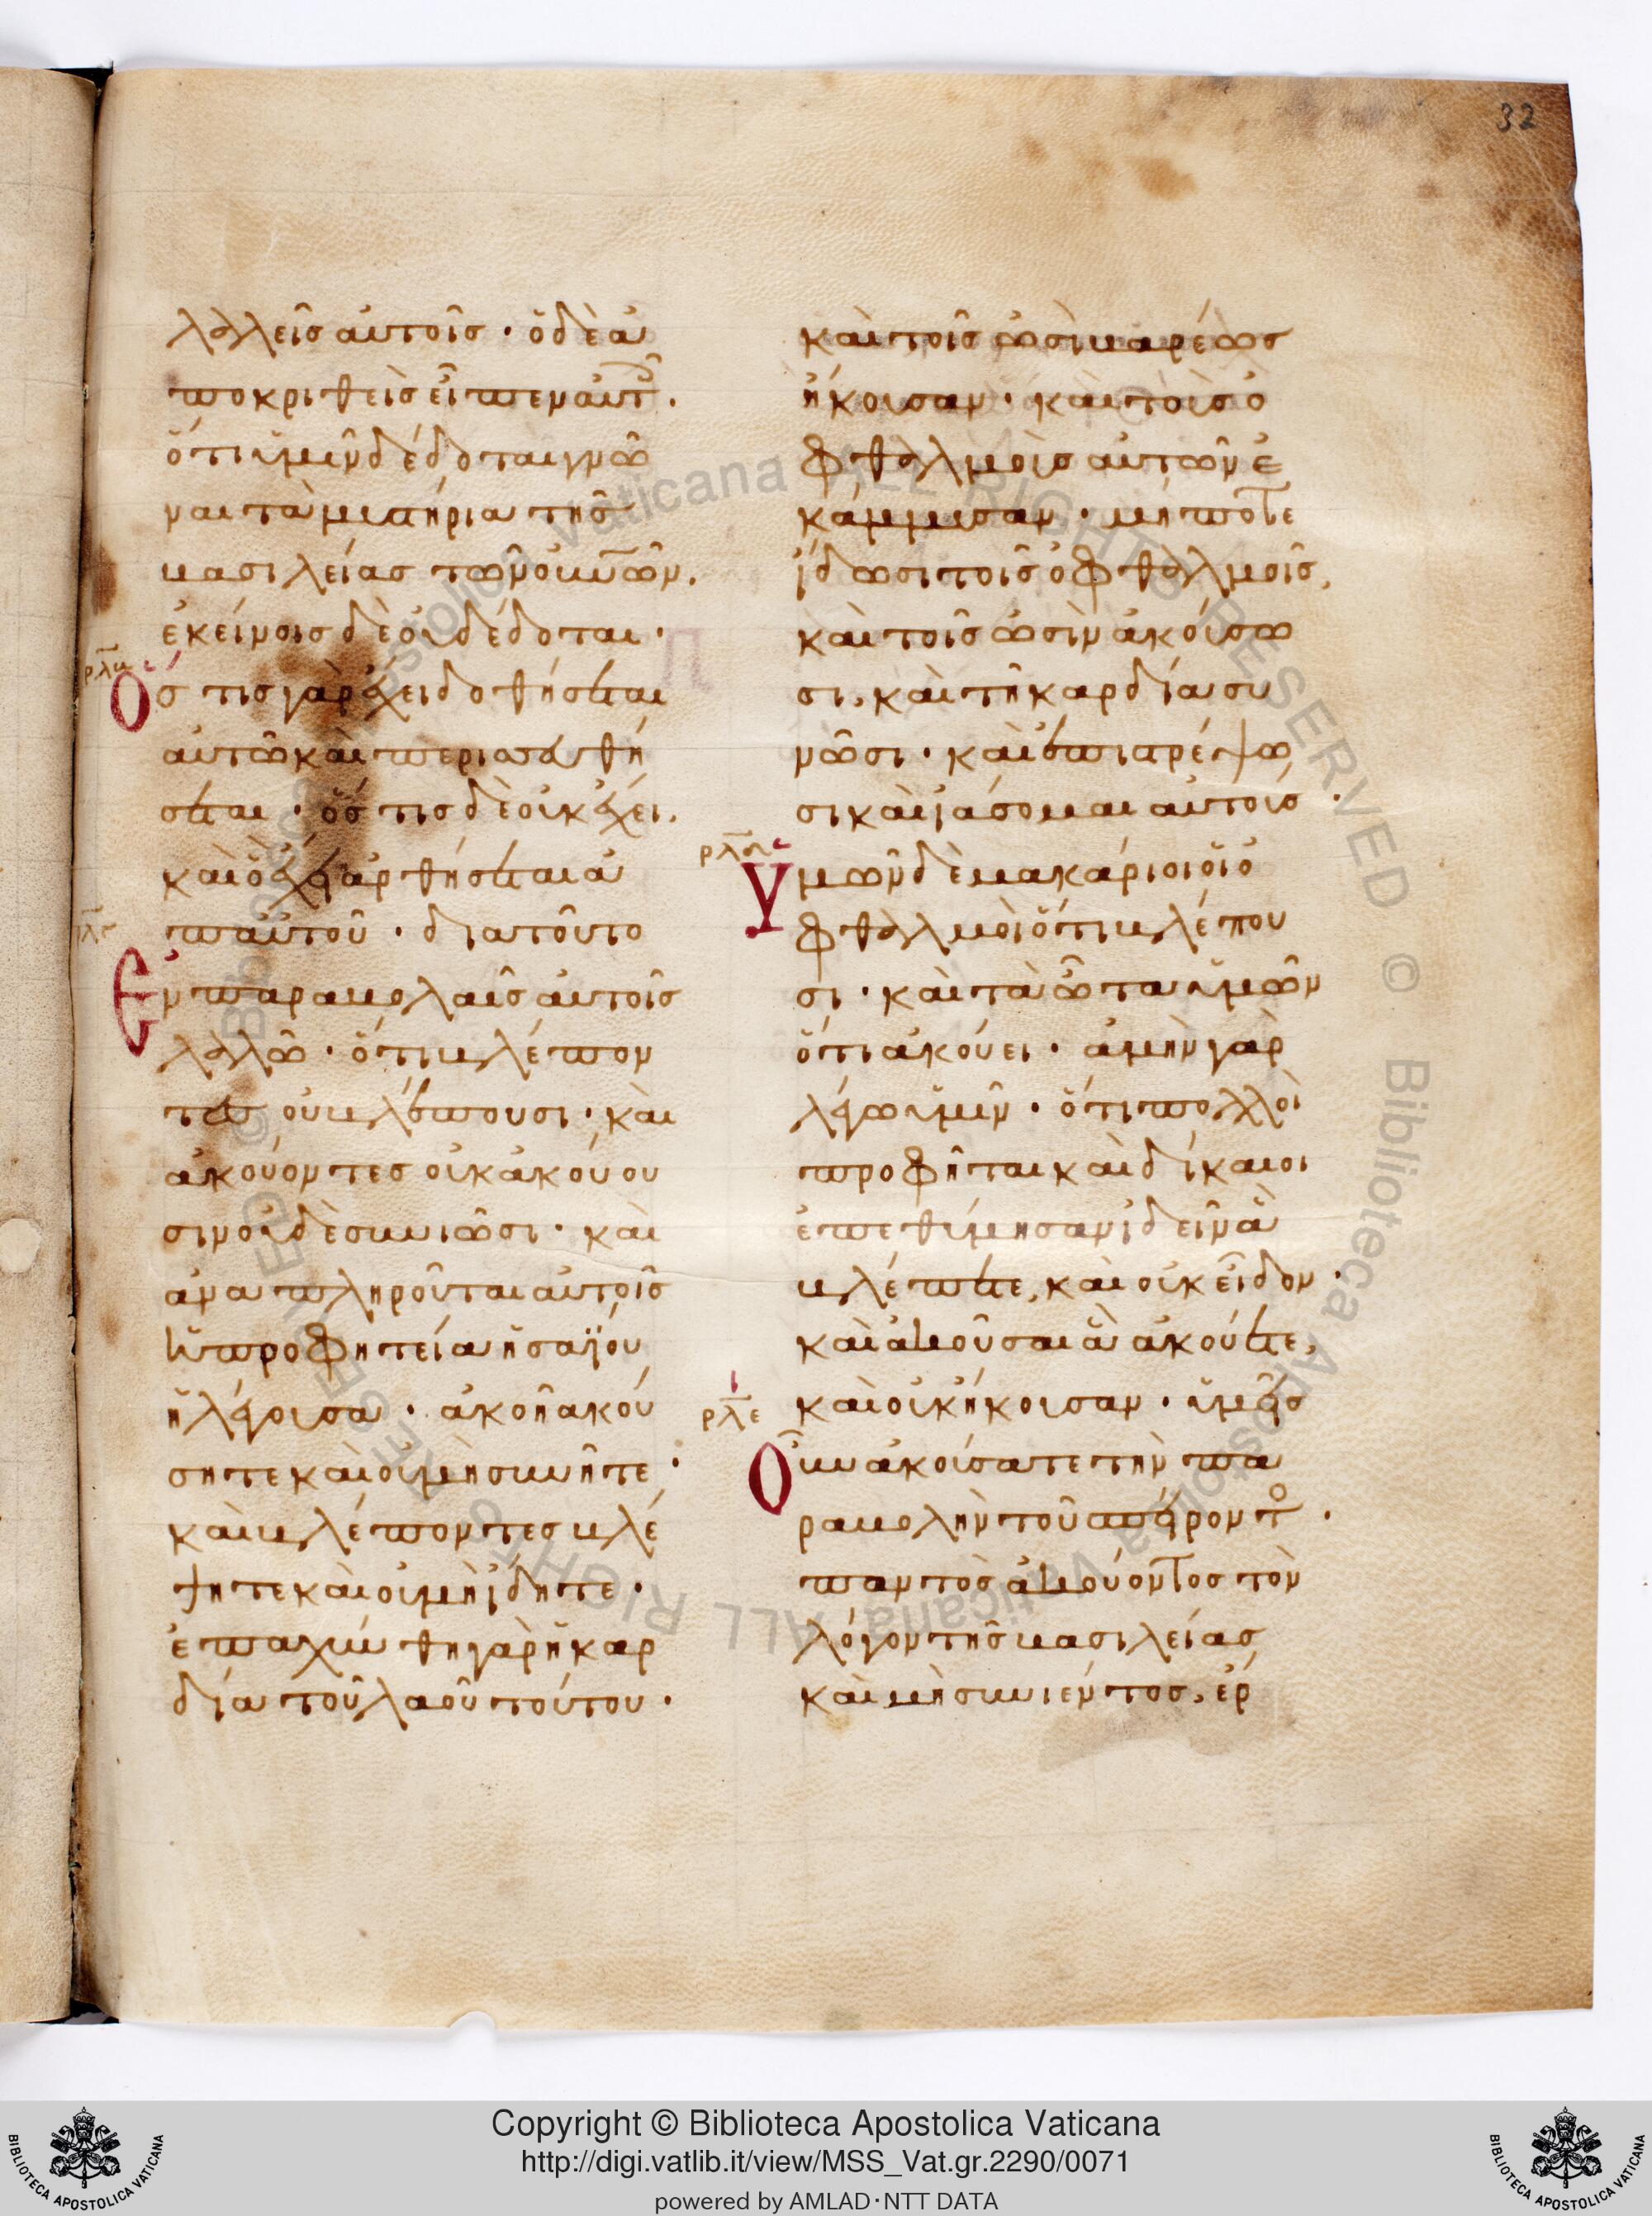 32
λαλεῖς αὐτοῖς · ὁ δὲ ἀ
ποκριθεὶς εἶπεν αὐτ ·
ὅτι ὑμῖν δέδοται γνῶ
ναι τὰ μυστήρια τῆς
βασιλείας τῶν οὐνῶν,
ἐκείνοις δὲ οὐ δέδοται ·
ρλβ
Ὅς τις γὰρ ἔχει δοθήσεται
αὐτῶ καὶ περισσευθή
σεται · ὅς τις δὲ οὐκ ἔχει,
καὶ ὃ ἔχει ἀρθήσεται ἀ
π αὐτοῦ · διατοῦτο
Ἐν παραβολαῖς αὐτοῖς
λαλῶ · ὅτι βλέπον
τες οὐ βλέπουσι · καὶ
ἀκούοντες οὐκ ἀκούου
σιν οὐδὲ συνιῶσι · καὶ
ἀναπληροῦται αὐτοῖς
ἡ προφητεία ἠσαΐου
ἡ λέγουσα · ἀκοῆ ἀκού
σητε καὶ οὐ μὴ συνῆτε ·
καὶ βλέποντες βλέ
ψητε καὶ οὐ μὴ ἴδητε ·
ἐπαχύνθη γὰρ ἡ καρ
δία τοῦ λαοῦ τούτου ·
καὶ τοῖς ὠσὶ βαρέως
ἤκουσαν · καὶ τοὺς ὀ
φθαλμοὺς αὐτῶν ἐ
κάμμυσαν · μήποτε
ἴδωσι τοῖς ὀφθαλμοῖς,
καὶ τοῖς ὠσὶν ἀκούσω
σι, καὶ τῆ καρδία συ
νῶσι · καὶ ἐπιστρέψω
σι καὶ ἰάσομαι αὐτούς ·
ρλδ
Ὑμῶν δὲ μακάριοι οἱ ὀ
φθαλμοὶ ὅτι βλέπου
σι · καὶ τὰ ὦτα ὑμῶν
ὅτι ἀκούει · ἀμὴν γὰρ
λέγω ὑμῖν · ὅτι πολλοὶ
προφῆται καὶ δίκαιοι
ἐπεθύμησαν ἰδεῖν ἃ
βλέπετε, καὶ οὐκ εἶδον ·
καὶ ἀκοῦσαι ἃ ἀκούετε,
καὶ οὐκ ἤκουσαν · ὑμεῖς
ρλε
Οὖν ἀκούσατε τὴν πα
ραβολὴν τοῦ σπείροντο ·
παντὸς ἀκούοντος τὸν
λόγον τῆς βασιλείας
καὶ μὴ συνιέντος, ἔρ
Copyright © Biblioteca Apostolica Vaticana
http://digi.vatlib.it/view/MSS_Vat.gr.2290/0071
powered by AMLAD·NTT DATA
BIBLIOTECA APOSTOLICA VATICANA
BIBLIOTECA APOSTOLICA VATICANA
© Biblioteca Apostolica Vaticana ALL RIGHTS RESERVED © Biblioteca Apostolica Vaticana ALL RIGHTS RESERVED